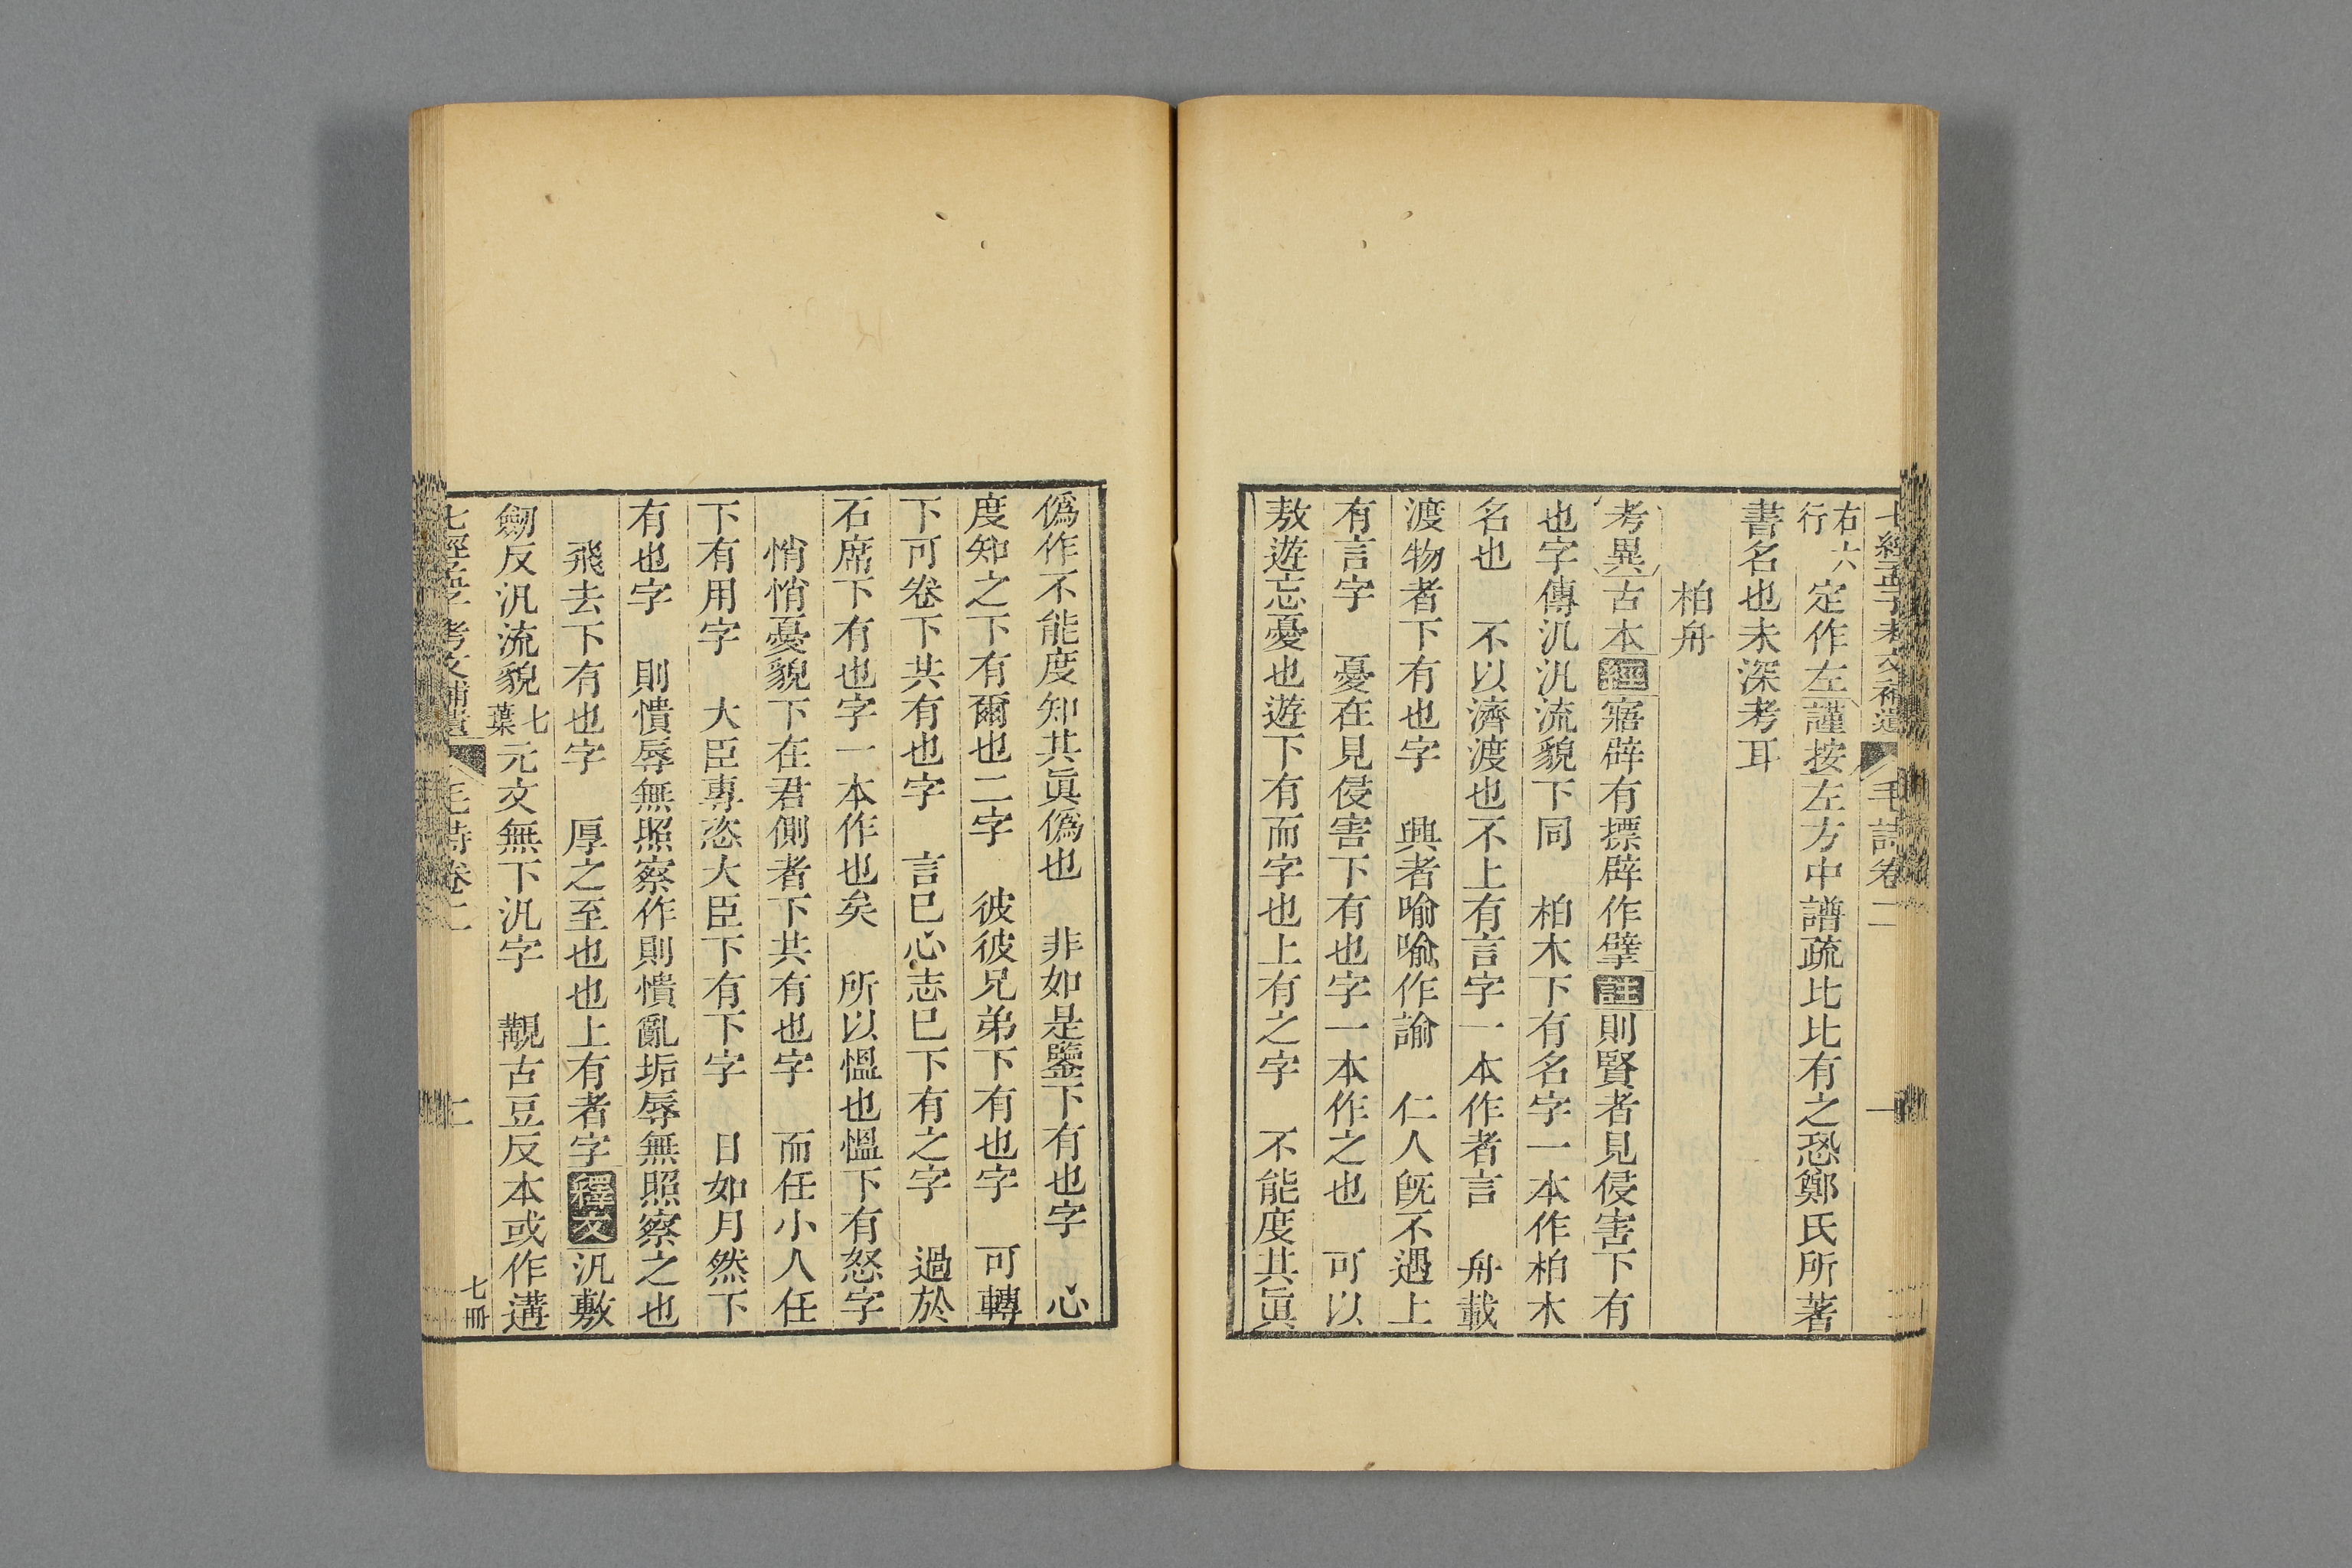 七經孟子考文補遺 毛詩卷二 一
右六行定作左謹按左方中譜疏比比有之恐鄭氏所著
書名也未深考耳
柏舟
考異古本經寤辟有摽辟作擘註則賢者見侵害下有
也字傳汎汎流貌下同 柏木下有名字一本作柏木
名也 不以濟渡也不上有言字一本作者言 舟載
渡物者下有也字 興者喻喻作諭 仁人旣不遇上
有言字 憂在見侵害下有也字一本作之也 可以
敖遊忘憂也遊下有而字也上有之字 不能度其眞
僞作不能度知其眞僞也 非如是鑒下有也字 心
度知之下有爾也二字 彼彼兄弟下有也字 可轉
下可卷下共有也字 言已心志已下有之字 過於
石席下有也字一本作也矣 所以慍也慍下有怒字
悄悄憂貌下在君側者下共有也字 而任小人任
下有用字 大臣專恣大臣下有下字 日如月然下
有也字 則憒辱無照察作則憒亂垢辱無照察之也
飛去下有也字 厚之至也也上有者字釋文汎敷
劒反汎流貌七葉元文無下汎字 覯古豆反本或作遘
七經孟子考文補遺 毛詩卷二 二 七冊